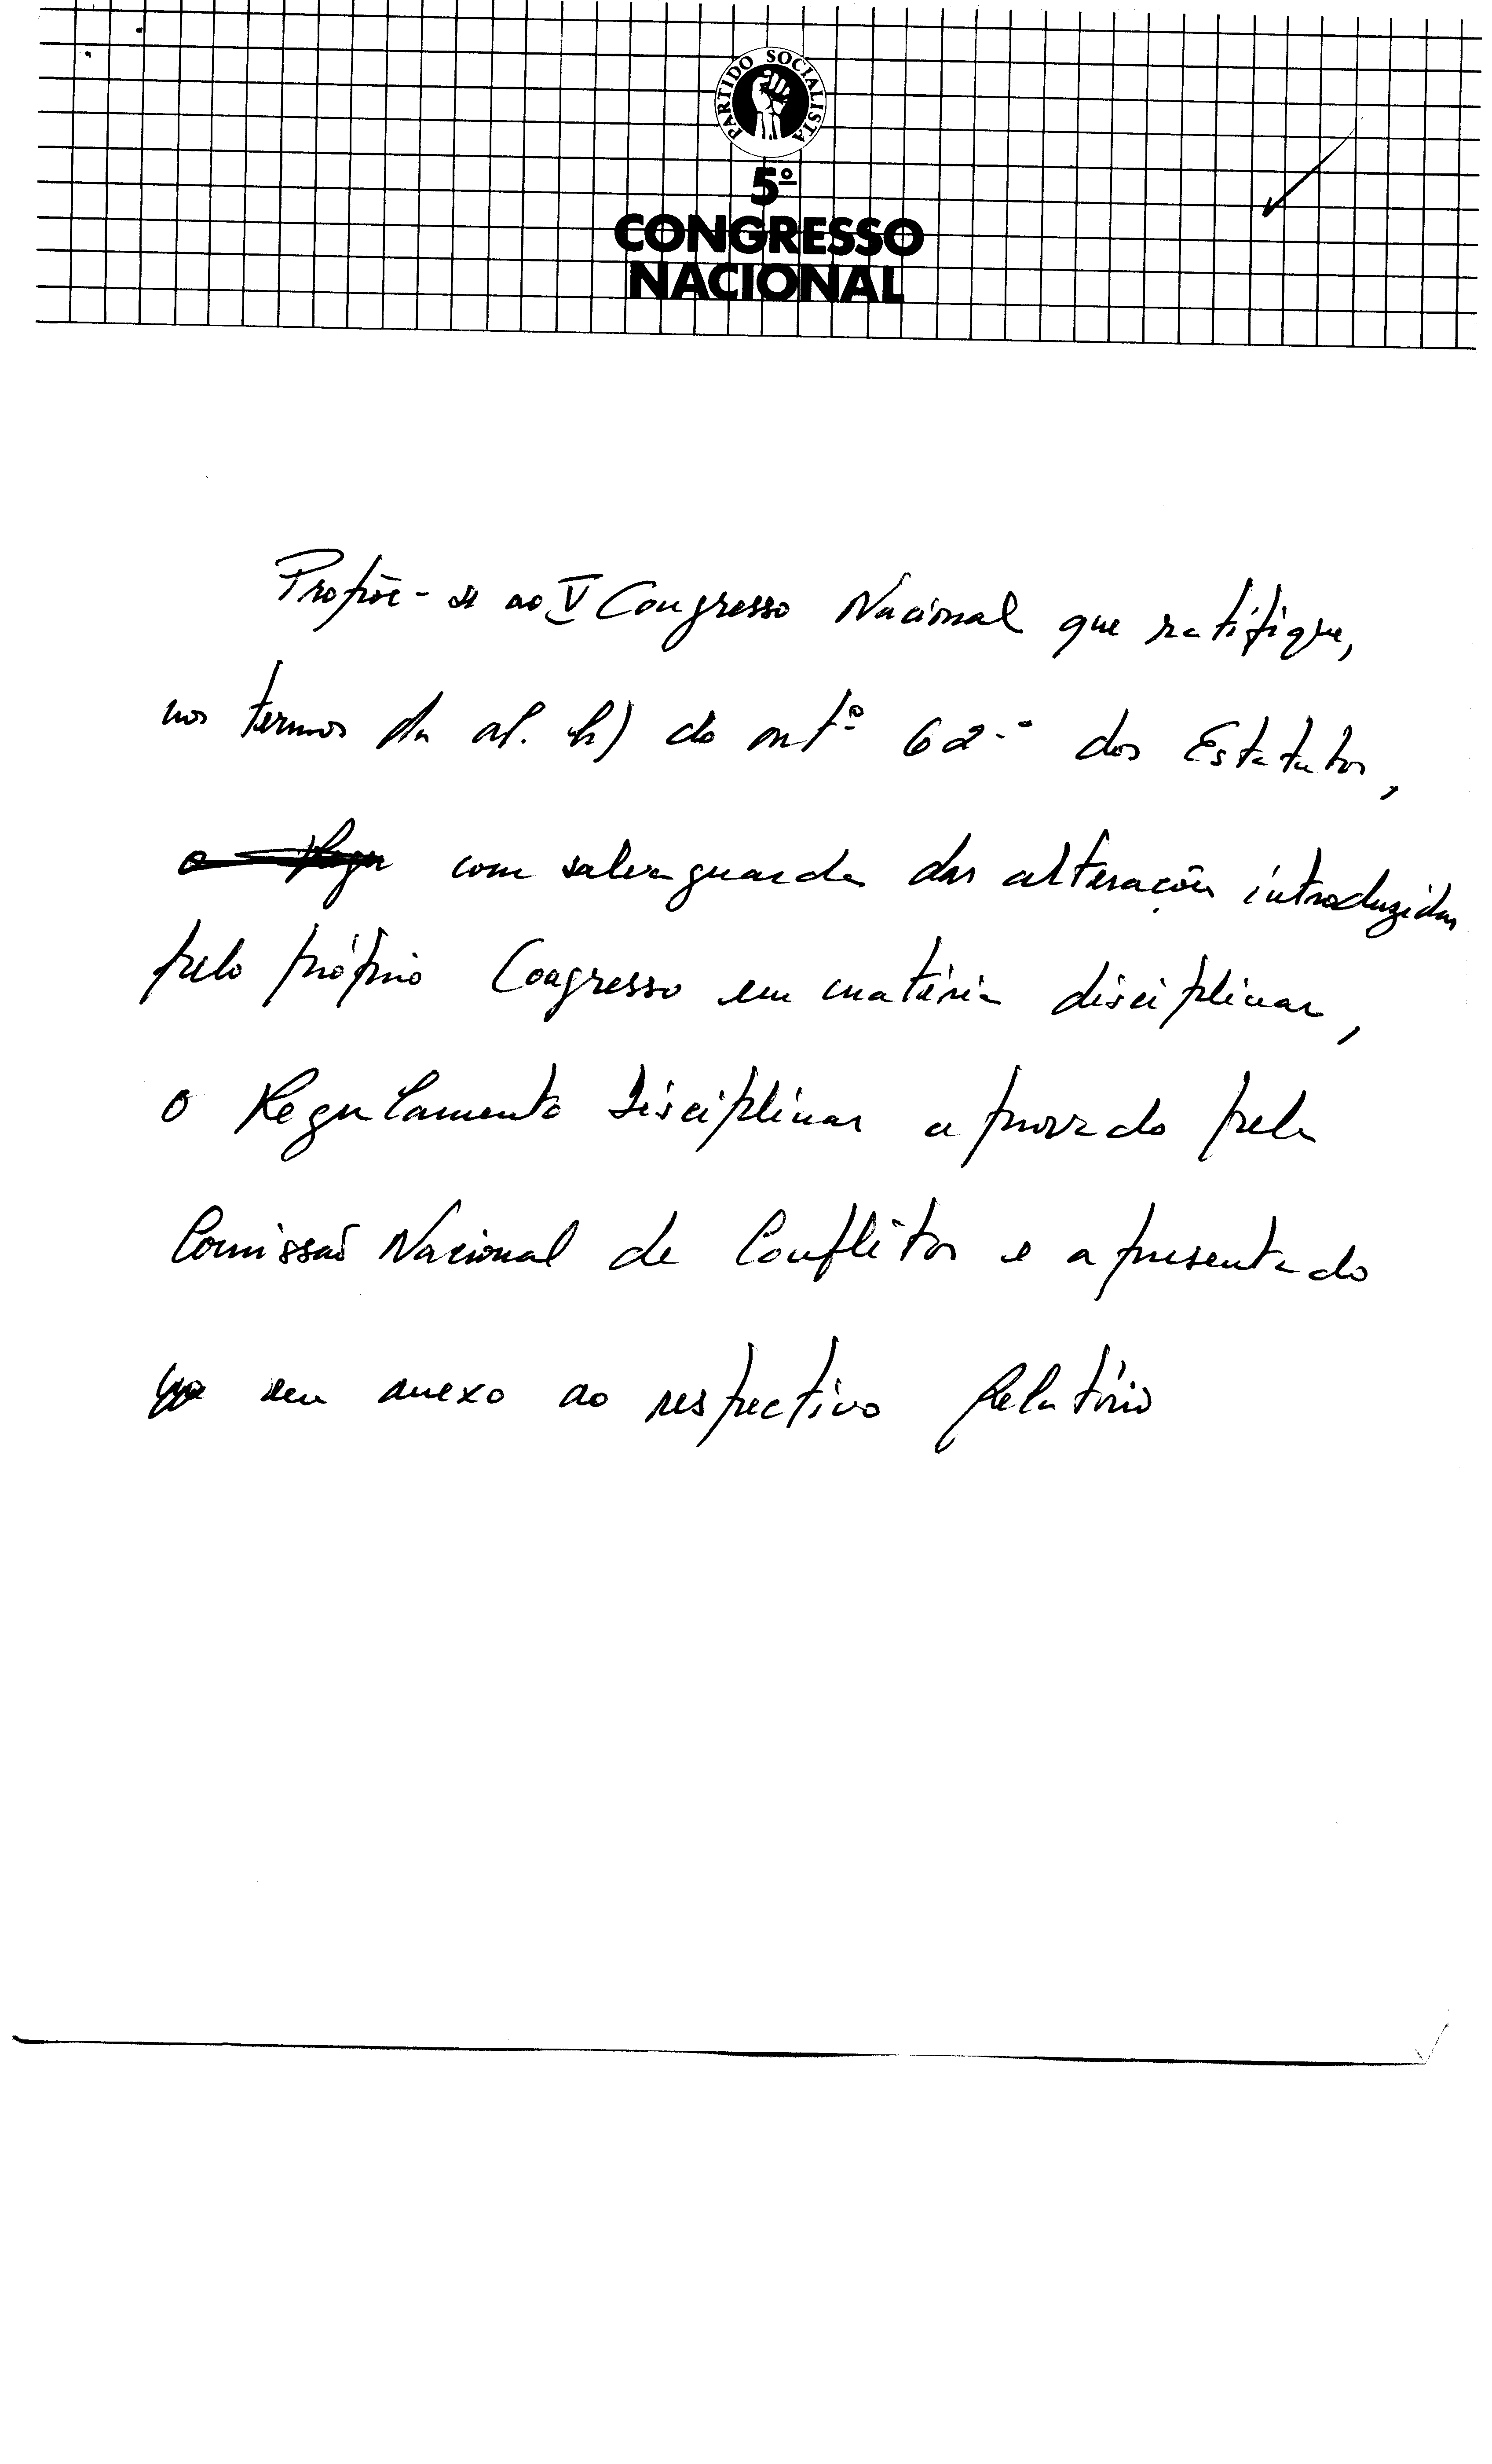 PARTIDO SOCIALISTA
5º
CONGRESSO
NACIONAL
Propõe-se ao V Congresso Nacional que ratifique,
nos termos da al. h) do artº 62.º dos Estatutos,
com salvaguarda das alterações introduzidas
pelo próprio Congresso em matéria disciplinar,
o Regulamento Disciplinar aprovado pela
Comissão Nacional de Conflitos e apresentado
em anexo ao respectivo Relatório